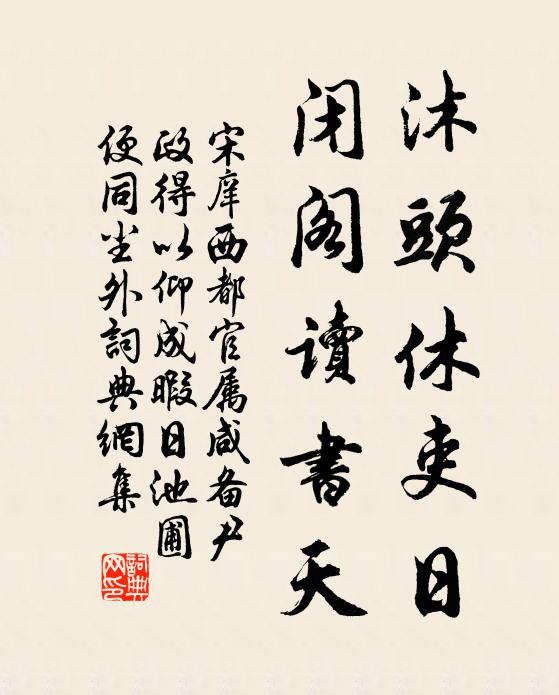 沐頭休吏日
閉閣讀書天
宋庠西都官属咸备尹
政得以仰成暇日池圃
便同尘外詞典網集
詞典网印